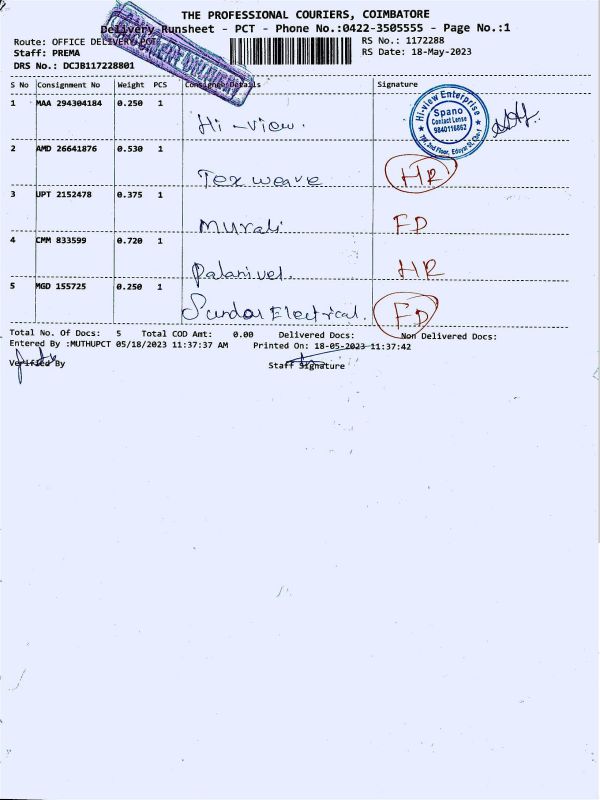 THE PROFESSIONAL COURIERS, COIMBATORE
Delivery Runsheet - PCT - Phone No.:0422-3505555 - Page No.:1
Route: OFFICE DELIVERY PCT
RS No.: 1172288
Staff: PREMA
RS Date: 18-May-2023
DRS No.: DCJB117228801
S No Consignment No Weight PCS Consignee Details Signature
1 MAA 294304184 0.250 1 Hi-view.
Hi-view Enterprise
Spano
Contact Lense
9840116862
2 AMD 26641876 0.530 1 Tex weave HR
3 UPT 2152478 0.375 1 Murali FD
4 CMM 833599 0.720 1 Palanivel. HR
5 MGD 155725 0.250 1 Sundar Electrical. FD
Total No. Of Docs: 5 Total COD Amt: 0.00 Delivered Docs: Non Delivered Docs:
Entered By :MUTHUPCT 05/18/2023 11:37:37 AM Printed On: 18-05-2023 11:37:42
Verified By Staff Signature